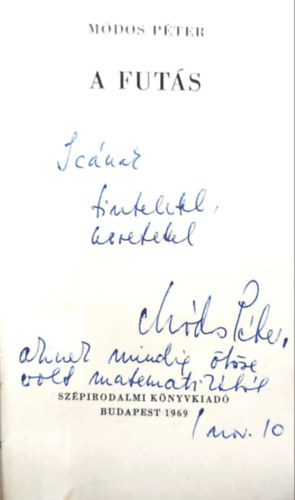 MÓDOS PÉTER
A FUTÁS
Icának
tisztelettel,
szeretettel
Módos Péter,
akinek mindig ötöse
volt matematikából
SZÉPIRODALMI KÖNYVKIADÓ
BUDAPEST 1969
nov. 10